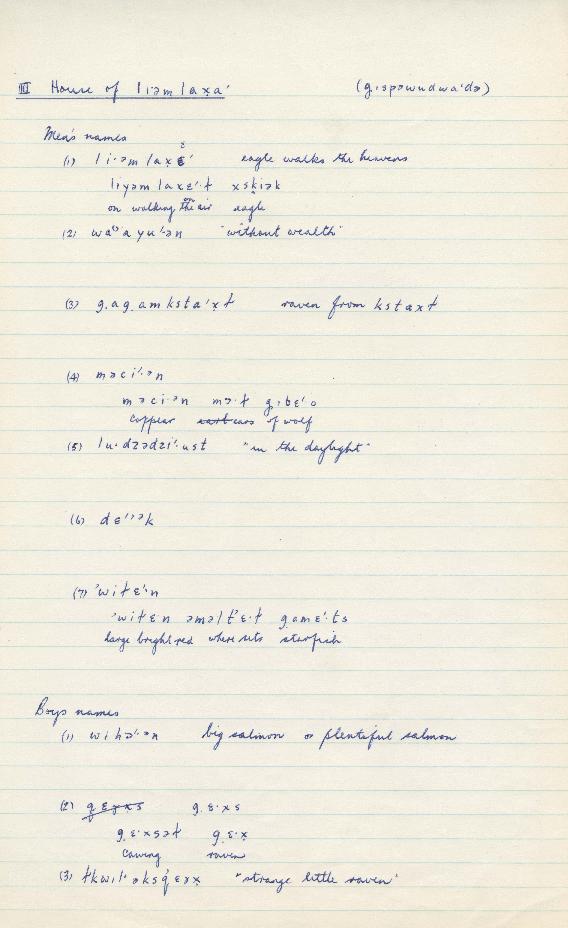 III House of li·əmlax̣a' (g̣ıspəwudwa'də)
Men's names
(1) li·əmlaxɛ' eagle walks the heavens
liyəmlaxɛ'·ɫ xsḳiək
on walking on the air eagle
(2) wa yu'·ən "without wealth"
(3) g̣ag̣amksta'x̣ɫ raven from kstaxɫ
(4) məci'·ən
məci·ən mə·ɫ g̣ıbɛ'·o
coppear ears of wolf
(5) lu·dzədzi'·ust "in the daylight"
(6) dɛ'''ək
(7) 'witɛ'·n
'witɛ·n əməltʼɛ·ɫ g̣amɛ'·ts
large bright red where sits starfish
Boys names
(1) wihə'·ən big salmon or plentiful salmon
(2) g̣·ɛ·xs
g̣ɛ·xsəɫ g̣ɛ·x̣
cawing raven
(3) "strange little raven"